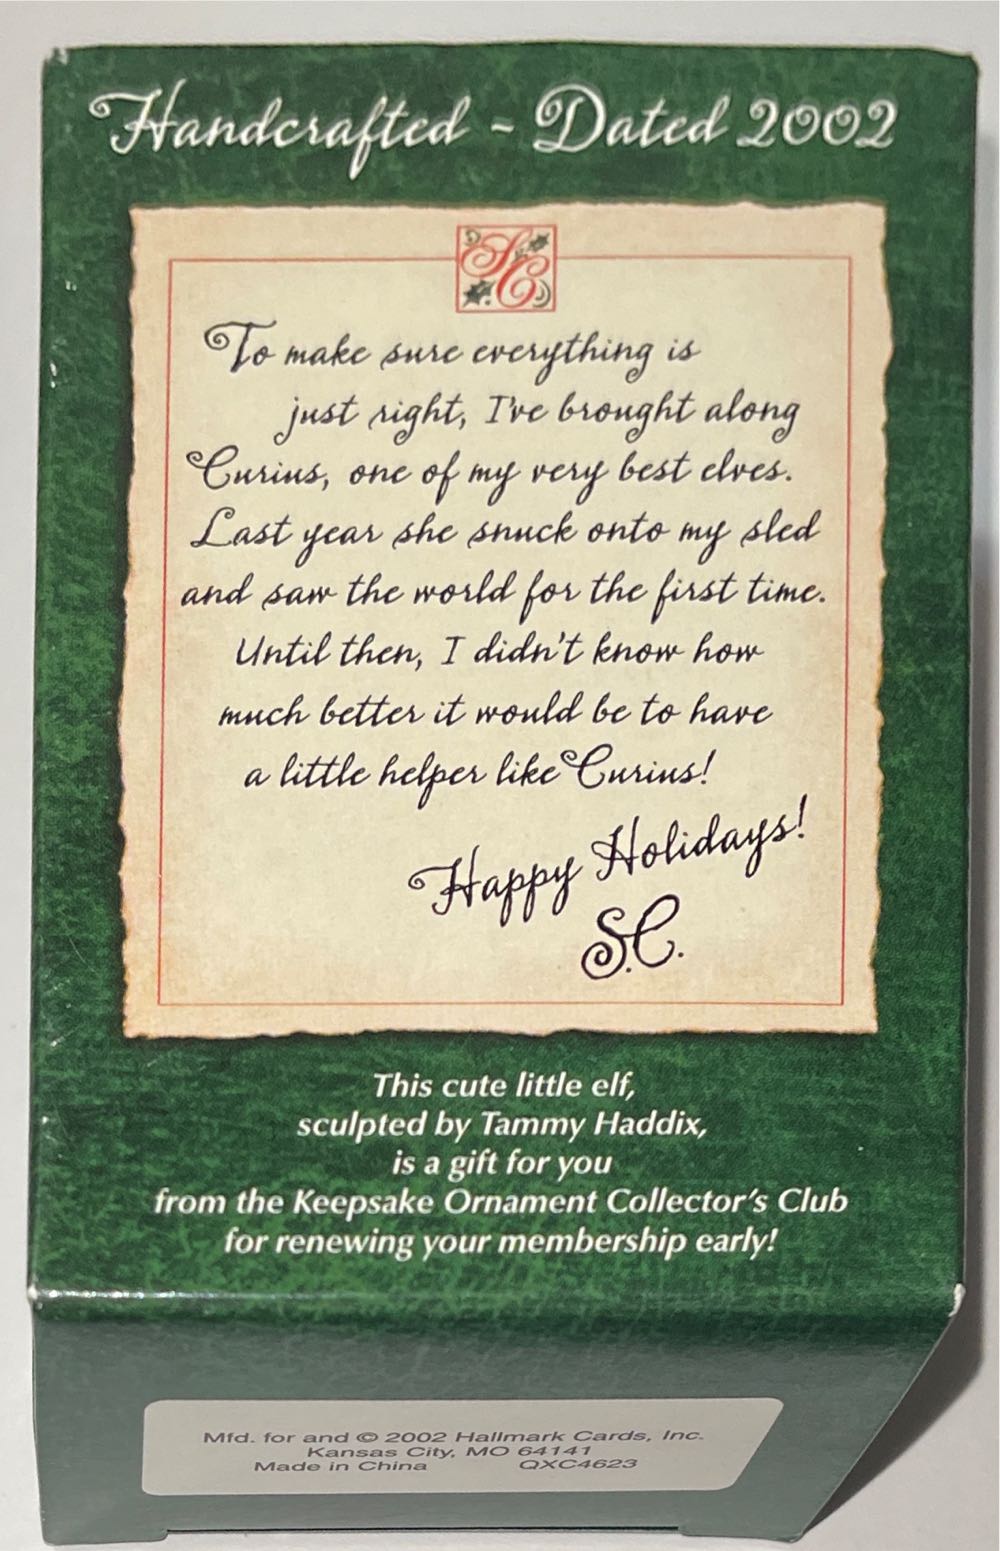 Handcrafted ~ Dated 2002
SC
To make sure everything is
just right, I've brought along
Curius, one of my very best elves.
Last year she snuck onto my sled
and saw the world for the first time.
Until then, I didn't know how
much better it would be to have
a little helper like Curius!
Happy Holidays!
S.C.
This cute little elf,
sculpted by Tammy Haddix,
is a gift for you
from the Keepsake Ornament Collector's Club
for renewing your membership early!
Mfd. for and © 2002 Hallmark Cards, Inc.
Kansas City, MO 64141
Made in China QXC4623